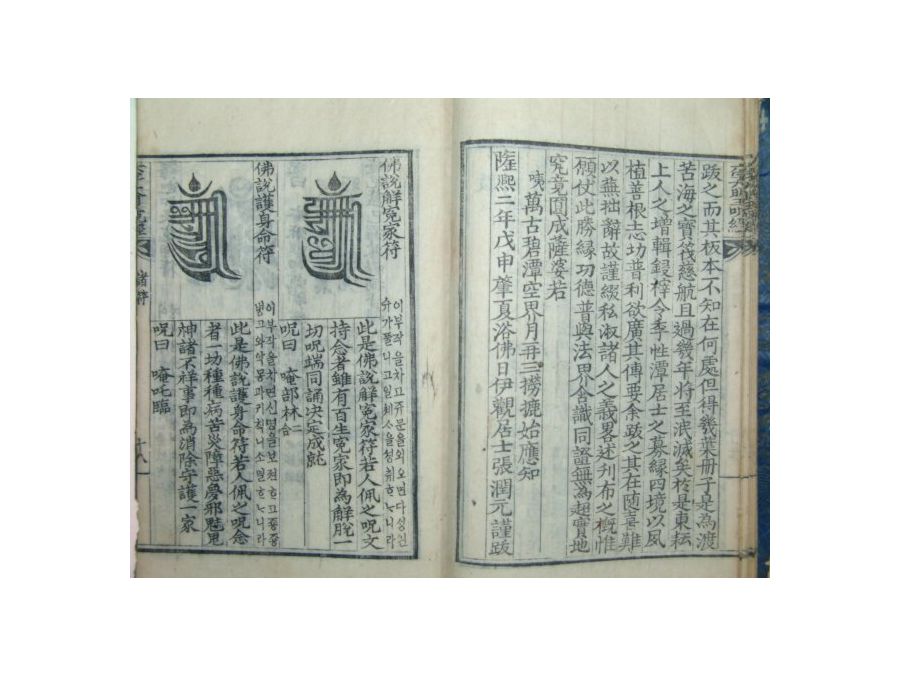 跋之而其板本不知在何處但得幾葉冊子是為渡
苦海之寶筏慈航且過幾年將至泯滅矣於是東耘
上人之增輯録梓令季性潭居士之募緣四境以夙
植善根志功普利欲廣其傳要余跋之其在随喜難
以蕪拙辭故謹綴私淑諸人之義畧述刋布之槪惟
願仗此勝緣功德普與法界含識同證無為超實地
究竟圓成薩婆若
咦萬古碧潭空界月再三撈摝始應知
隆熙二年戊申肇夏浴佛日伊觀居士張潤元謹跋
佛說解冤家符
이부작을차고쥬문을외오면다셩건
슈가풀니고일체소을셩취흐느니라
此是佛說解冤家符若人佩之呪文
持念者雖有百生冤家即為解脫一
切呪端同誦决定成就
呪曰 唵部林二合
佛說護身命符
이부작을차면신명을보젼흐고즁즁
병고와악몽과키칙니소멸흐느니라
此是佛說護身命符若人佩之呪念
者一切種種病苦災障惡夢邪魅鬼
神諸不祥事即為消除守護一家
呪曰 唵叱臨
諸符
十八